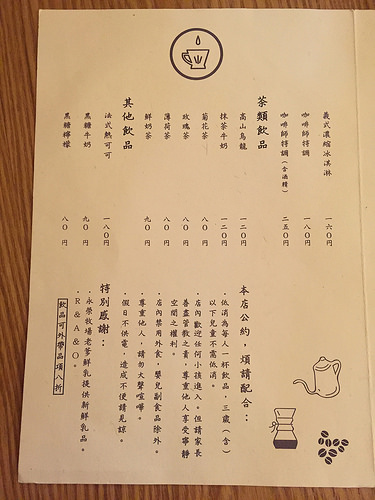 義式濃縮冰淇淋 一六〇円
咖啡師特調 一八〇円
咖啡師特調(含酒精) 二五〇円
茶類飲品
高山烏龍 一二〇円
抹茶牛奶 一二〇円
菊花茶 八〇円
玫瑰茶 八〇円
薄荷茶 八〇円
鮮奶茶 九〇円
其他飲品
法式熱可可 一八〇円
黑糖牛奶 九〇円
黑糖檸檬 八〇円
本店公約,煩請配合:
・低消為每人一杯飲品,三歲(含)
以下兒童不需低消。
・店內歡迎任何小孩進入。但請家長
善盡管教之責,尊重他人享受寧靜
空間之權利。
・店內禁用外食,嬰兒副食品除外。
・尊重他人,請勿大聲喧嘩。
・假日不供電,造成不便請見諒。
特別感謝:
・永榮牧場老爹鮮乳提供新鮮乳品。
・R&A&O。
飲品可外帶品項八折